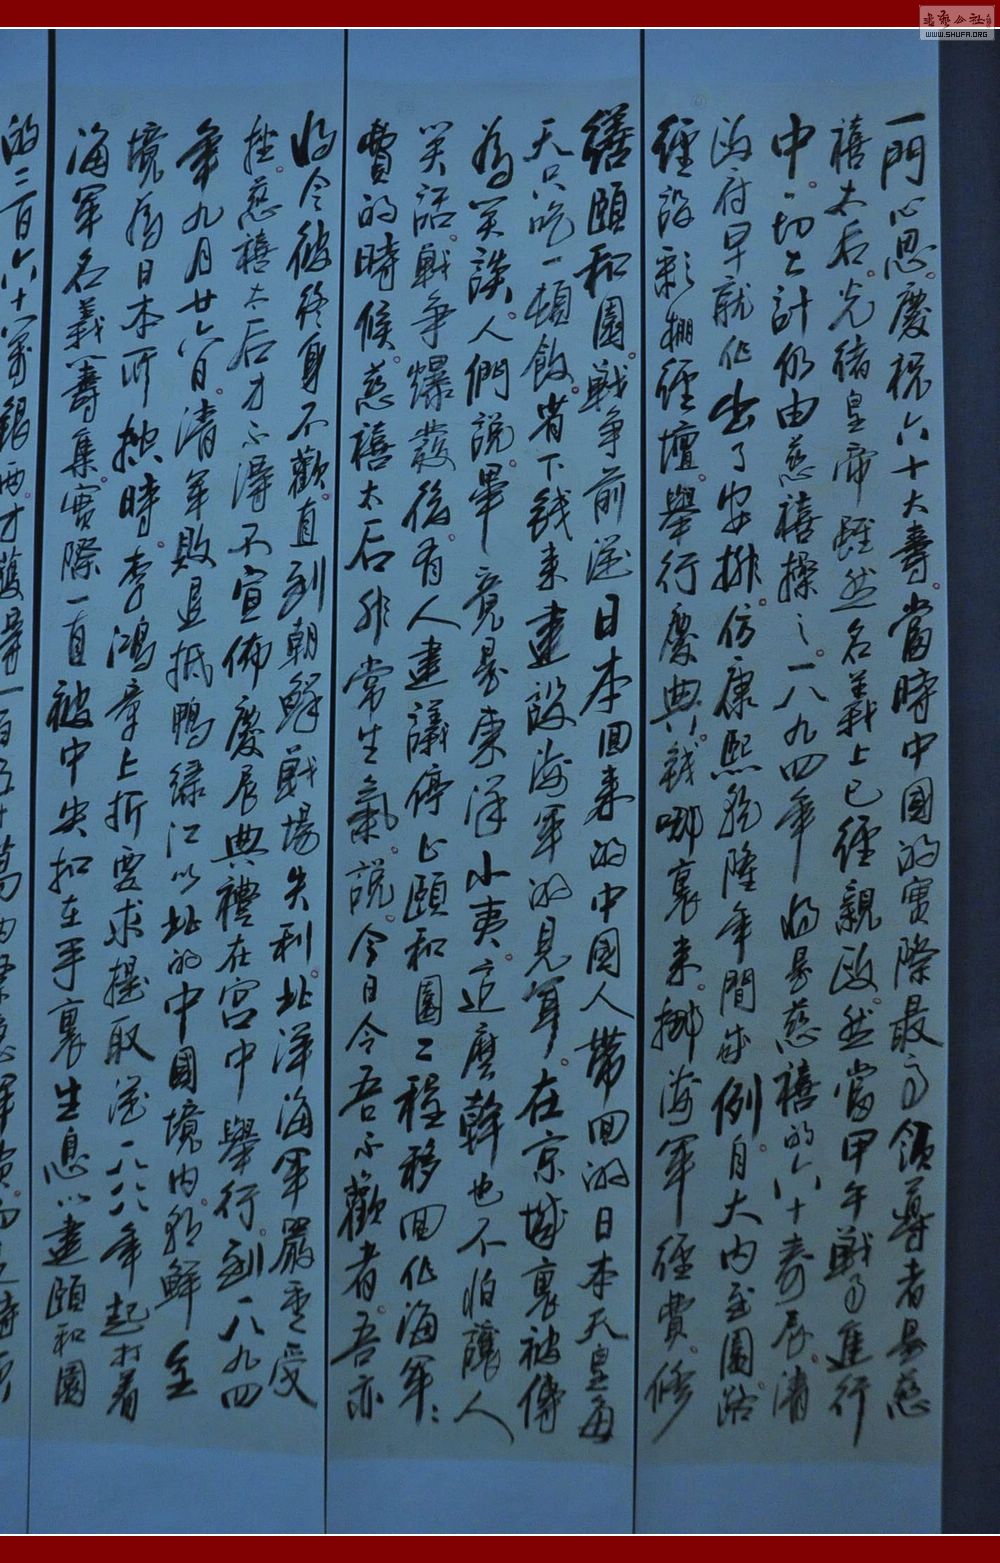 一門心思慶祝六十大壽當時中國的實際最高領導者是慈
禧太后光緒皇帝雖然名義上已經親政然當甲午戰事進行
中一切大計仍由慈禧操之一八九四年將是慈禧的六十壽辰清
政府早就作出了安排仿康熙乾隆年間成例自大内至園路
經設彩棚經壇舉行慶典錢哪裏來挪海軍經費修
繕頤和園戰爭前從日本回來的中國人帶回的日本天皇每
天只吃一頓飯省下錢來建設海軍的見聞在京城裏被傳
為笑談人們說畢竟是東洋小夷這麼幹也不怕讓人
笑話戰爭爆發後有人建議停止頤和園工程移回作海軍
費的時候慈禧太后非常生氣說今日令吾不歡者吾亦
將令彼終身不歡直到朝鮮戰場失利北洋海軍嚴重受
挫慈禧太后才不得不宣佈慶辰典禮在宮中舉行到一八九四
年九月廿六日清軍敗退抵鴨綠江以北的中國境内朝鮮全
境為日本所控時李鴻章上折要求提取從一八八八年起打着
海軍名義籌集實際一直被中央扣在手裏生息以建頤和園
的二百六十萬銀两才獲得一百